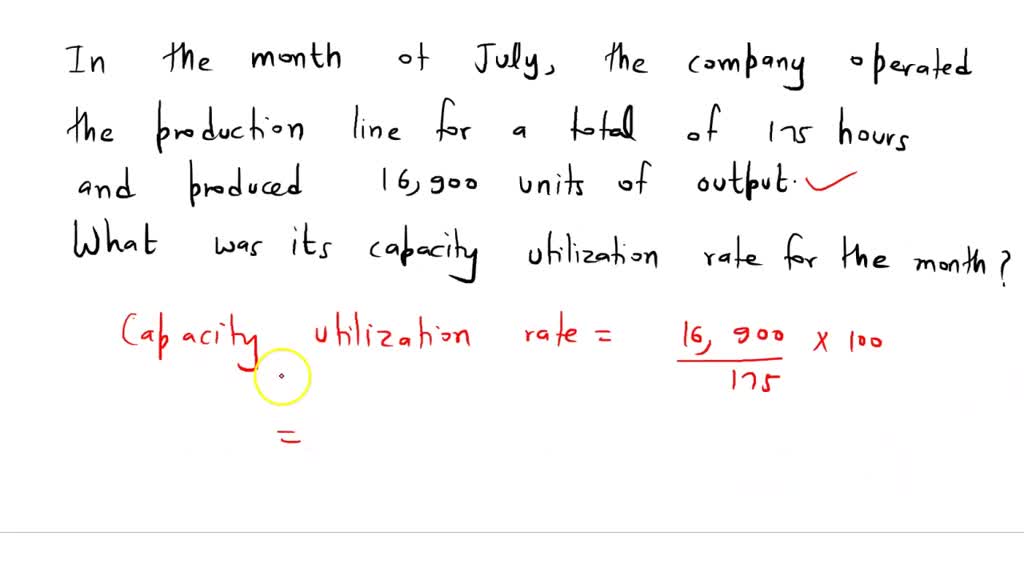 In the month of July, the company operated
the production line for a total of 175 hours
and produced 16,900 units of output.
What was its capacity utilization rate for the month?
Capacity utilization rate = 16,900 × 100
175
=